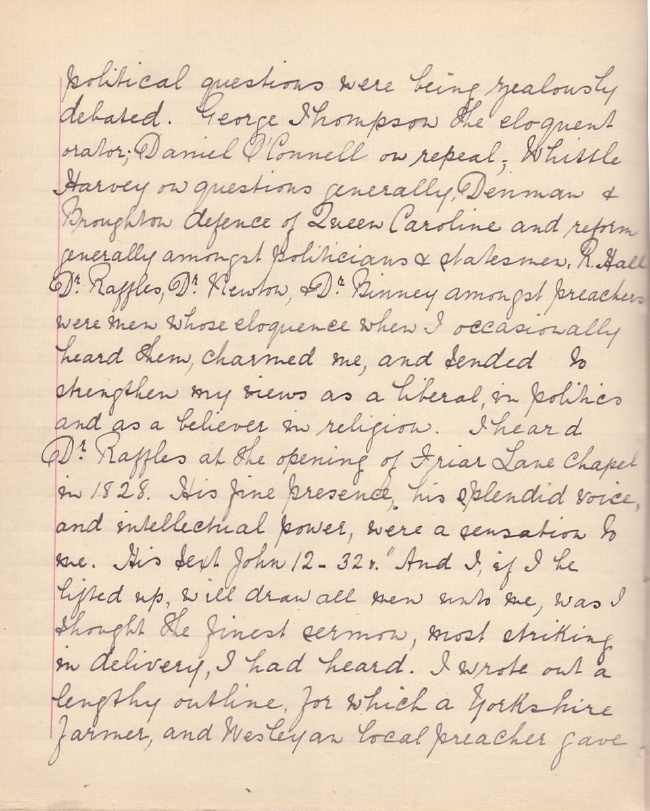 political questions were being zealously
debated. George Thompson the eloquent
orator; Daniel O'Connell on repeal; Whittle
Harvey on questions generally, Denman &
Broughton defence of Queen Caroline and reform
generally amongst politicians & statesmen, R. Hall
Dr. Raffles, Dr. Newton, & Dr. Binney amongst preachers
were men whose eloquence when I occasionally
heard them, charmed me, and tended to
strengthen my views as a liberal, in politics
and as a believer in religion. I heard
Dr. Raffles at the opening of Friar Lane Chapel
in 1828. His fine presence, his splendid voice,
and intellectual power, were a sensation to
me. His text John 12-32v. "And I, if I be
lifted up, will draw all men unto me, was I
thought the finest sermon, most striking
in delivery, I had heard. I wrote out a
lengthy outline, for which a Yorkshire
farmer, and Wesleyan local preacher gave